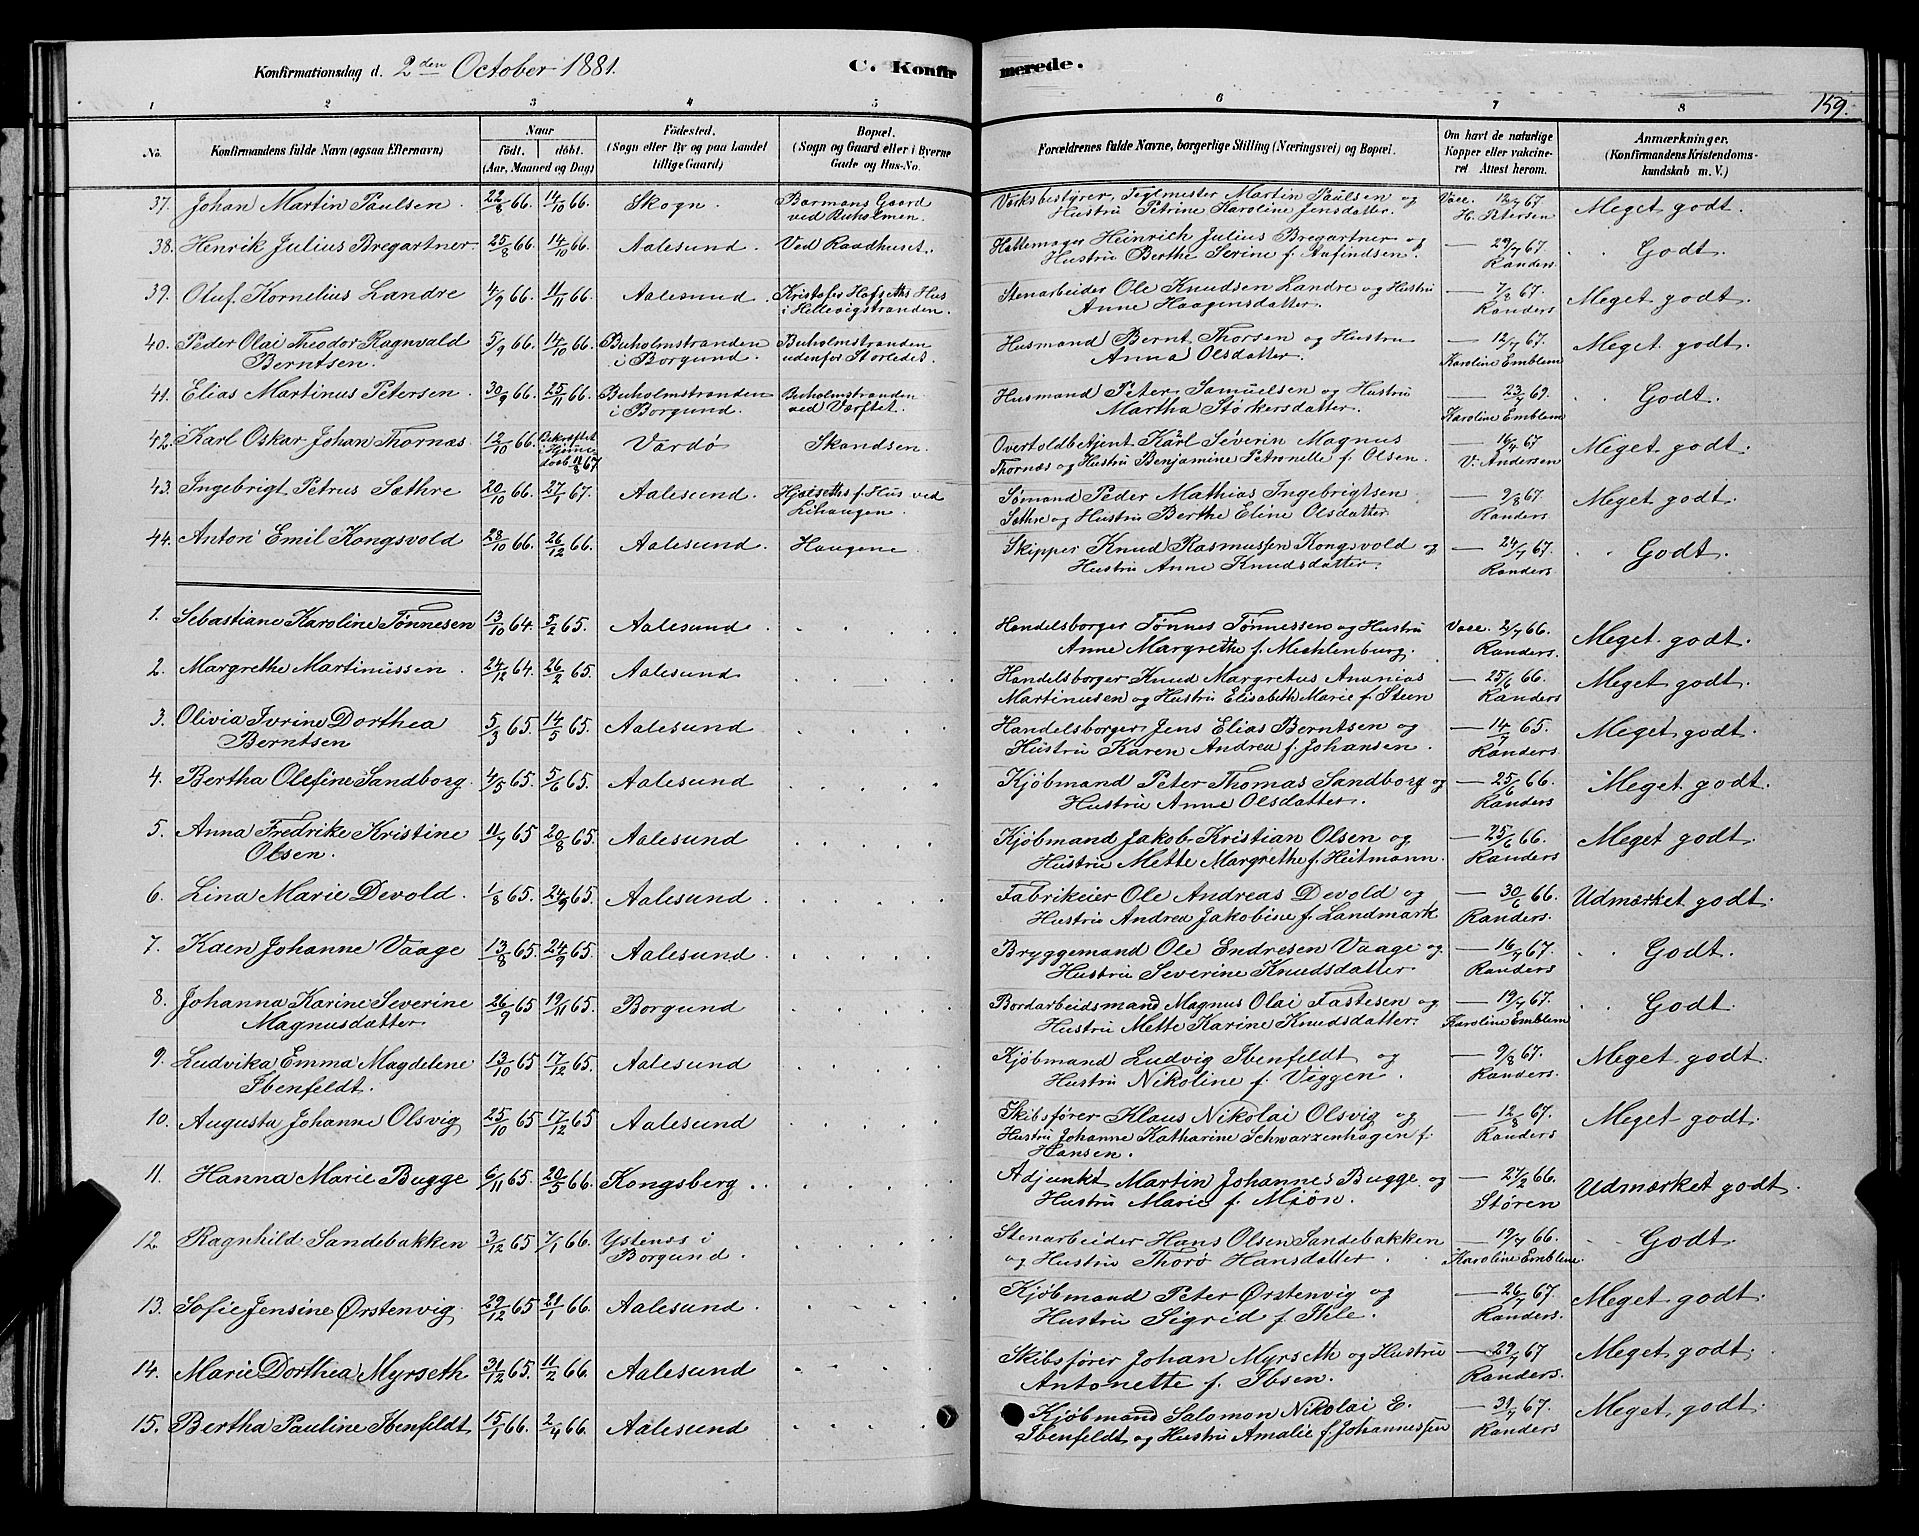 Konfirmationsdag d. 2den October 1881.
C. Konfirmerede.
159.
1 2 3 4 5 6 7 8
No.
Konfirmandens fulde Navn (ogsaa Efternavn)
Naar
födt. döbt.
(Aar, Maaned og Dag)
Födested.
(Sogn eller By og paa Landet
tillige Gaard)
Bopæl.
(Sogn og Gaard eller i Byerne
Gade og Hus-No.
Forældrenes fulde Navne, borgerlige Stilling (Næringsvei) og Bopæl.
Om havt de naturlige
Kopper eller vakcine-
ret Attest herom.
Anmærkninger.
(Konfirmandens Kristendoms-
kundskab m. V.)
37. Johan Martin Paulsen. 22/8 66. 14/10 66. Skogn. Barmans Gaard Værksbestyrer, Teglmester Martin Paulsen og Vacc. 12/7 67 Meget godt.
ved Buholmen. Hustru Petrine Karoline Jensdatter. H. Petersen
38. Henrik Julius Bregartner. 25/8 66. 14/10 66. Aalesund. Ved Raadhuset. Hattemager Heinrich Julius Bregartner og — 29/7 67. Godt.
Hustru Berthe Serine f. Aafindsen. Randers.
39. Oluf Kornelius Landre 4/9 66. 11/11 66. Aalesund. Kristofer Hofseths Hus Stenarbeider Ole Knudsen Landre og Hustru — 7/8 67. Meget godt.
i Hellevigstranden. Anne Haagensdatter. Randers
40. Peder Olai Theodor Ragnvald 5/9 66. 14/10 66. Buholmstranden Buholmstranden Husmand Bernt Thorsen og Hustru — 12/7 67. Meget godt.
Berntsen. i Borgund. udenfor Storledet. Anna Olsdatter. Karoline Emblem
41. Elias Martinus Petersen. 30/9 66. 25/11 66. Buholmstranden Buholmstranden Husmand Peter Samuelsen og Hustru — 23/7 69. Godt.
i Borgund. ved Værftet. Martha Størkersdatter. Karoline Emblem
42. Karl Oskar Johan Thornæs 12/10 66. Bekræftet Vardø Skandsen. Overtoldbetjent Karl Severin Magnus — 16/4 67. Meget godt.
i Hjemme-
daab 11/8 67 Thornæs og Hustru Benjamine Petronelle f. Olsen. V. Andersen
43. Ingebrigt Petrus Sæthre 20/10 66. 27/1 67. Aalesund. Hjelseths f. Hus ved Sømand Peder Mathias Ingebrigtsen — 9/8 67. Meget godt.
Lihaugen. Sæthre og Hustru Berthe Eline Olsdatter Randers.
44. Anton Emil Kongsvold 28/10 66. 26/12 66. Aalesund. Haugene Skipper Knud Rasmussen Kongsvold og — 24/7 67. Godt.
Hustru Anne Knudsdatter. Randers.
1. Sebastiane Karoline Tønnesen 13/10 64. 5/2 65. Aalesund Handelsborger Tønnes Tønnessen og Hustru Vacc. 2/7 66. Meget godt.
Anne Margrethe f. Mechlenburg. Randers.
2. Margrethe Martinussen. 24/12 64. 26/2 65. Aalesund Handelsborger Knud Margretus Ananias — 25/6 66. Meget godt.
Martinusen og Hustru Elisabeth Marie f. Steen Randers
3. Olivia Ivrine Dorthea 5/3 65. 14/5 65. Aalesund Handelsborger Jens Elias Berntsen og — 14/7 65. Meget godt.
Berntsen Hustru Karen Andrea f. Johansen. Randers
4. Bertha Olefine Sandborg. 4/5 65. 5/6 65. Aalesund Kjøbmand Peter Thomas Sandborg og — 25/6 66. Meget godt.
Hustru Anne Olsdatter. Randers
5. Anna Fredrike Kristine 11/7 65 20/8 65. Aalesund Kjøbmand Jakob Kristian Olsen og — 25/6 66. Meget godt.
Olsen. Hustru Mette Margrethe f. Heitmann. Randers
6. Lina Marie Devold. 1/8 65. 24/9 65. Aalesund Fabrikeier Ole Andreas Devold og — 30/6 66. Udmærket godt.
Hustru Andrea Jakobine f. Landmark Randers.
7. Kaen Johanne Vaage 13/8 65. 24/9 65. Aalesund Bryggemand Ole Endresen Vaage og — 16/7 67. Godt.
Hustru Severine Knudsdatter. Randers
8. Johanna Karine Severine 26/9 65 19/11 65. Borgund Bordarbeidsmand Magnus Olai Fastesen og — 19/7 67. Godt
Magnusdatter Hustru Mette Karine Knudsdatter. Karoline Emblem
9. Ludvika Emma Magdelene 13/10 65 17/12 65. Aalesund Kjøbmand Ludvig Ibenfeldt og — 9/8 67. Meget godt.
Ibenfeldt. Hustru Nikoline f. Viggen. Randers.
10. Augusta Johanne Olsvig 25/10 65 17/12 65 Aalesund Skibsfører Klaus Nikolai Olsvig og — 12/8 67. Meget godt.
Hustru Johanne Katharine Schwarzenhagen f. Randers
Hansen.
11. Hanna Marie Bugge 6/11 65. 20/5 66. Kongsberg. Adjunkt Martin Johannes Bugge og — 27/2 66. Udmærket godt.
Hustru Marie f. Mjøn. Støren
12. Ragnhild Sandebakken 3/12 65 7/1 66. Ystenes i Stenarbeider Hans Olsen Sandebakken — 19/7 66. Godt.
Borgund. og Hustru Thorø Hansdatter. Karoline Emblem.
13. Sofie Jensine Ørstenvig. 29/12 65 21/1 66. Aalesund. Kjøbmand Peter Ørstenvig og — 26/7 67. Meget godt.
Hustru Sigrid f. Ihle. Randers.
14. Marie Dorthea Myrseth 31/12 65. 11/2 66. Aalesund Skibsfører Johan Myrseth og Hustru — 29/7 67 Meget godt.
Antonette f. Ibsen. Randers.
15. Bertha Pauline Ibenfeldt 15/1 66. 2/4 66. Aalesund Kjøbmand Salomon Nikolai E. — 31/7 67. Meget godt.
Ibenfeldt og Hustru Amalie f. Johannessen Randers